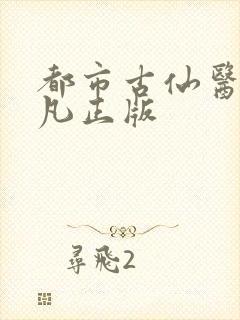 都市古仙醫
凡正版
尋飛2